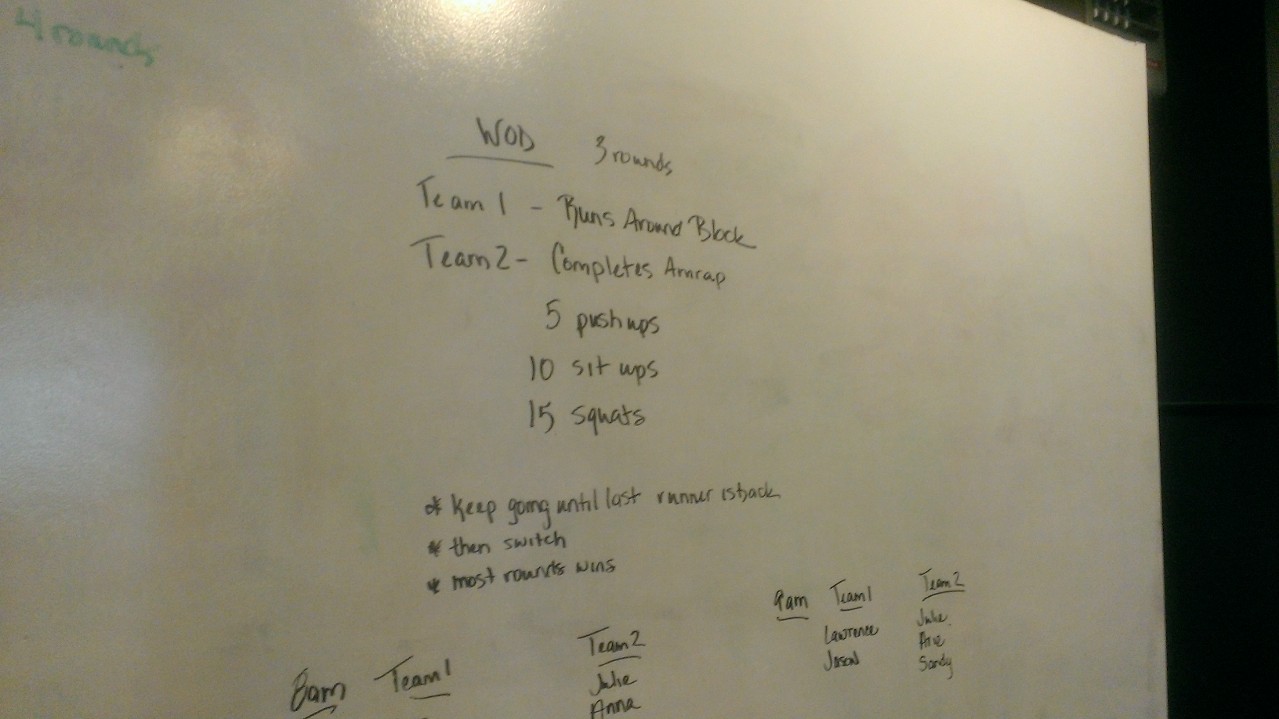 4 rounds
WOD 3 rounds
Team 1 - Runs Around Block
Team 2 - Completes Amrap
5 push ups
10 sit ups
15 squats
* Keep going until last runner is back
* then switch
* most rounds wins
9am Team 1 Team 2
Lawrence Julie
Jason
Sandy
8am Team 1 Team 2
Julie
Anna